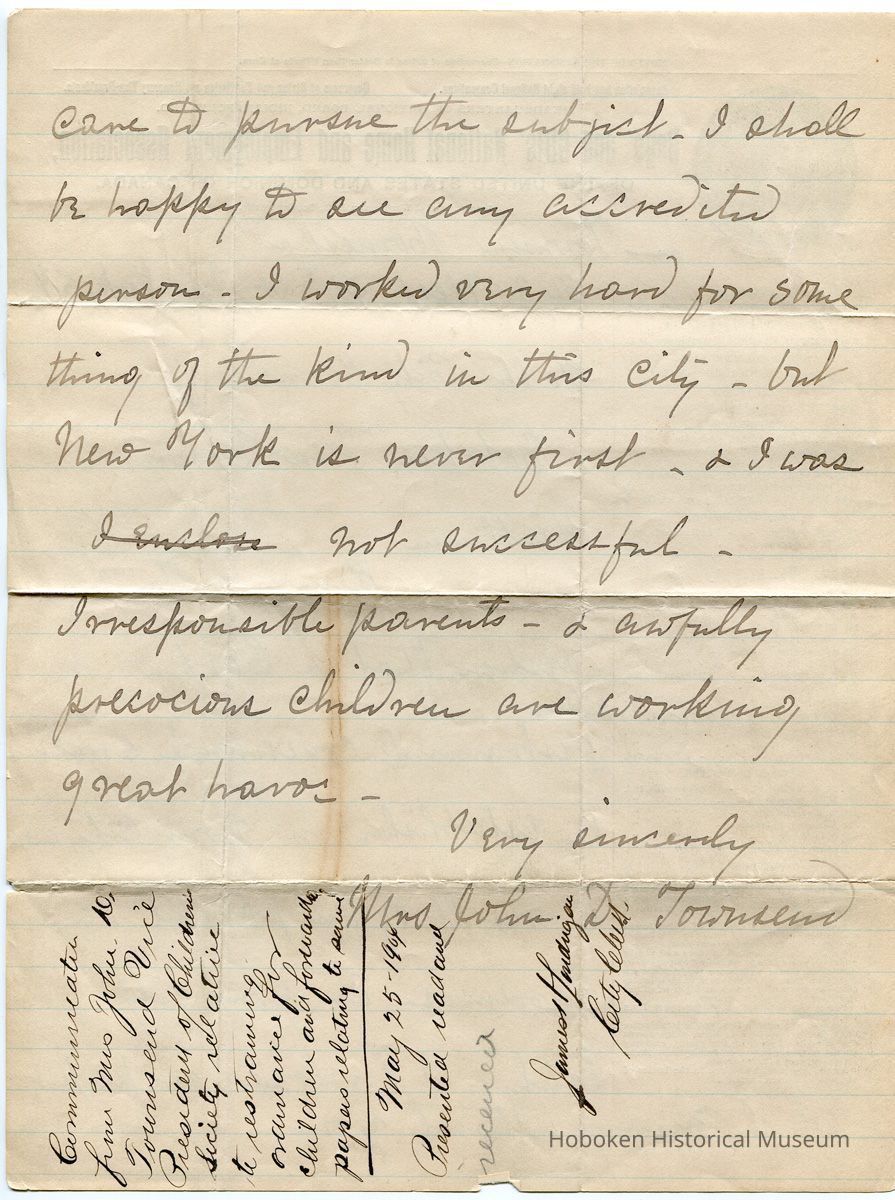 care to pursue the subject - I shall
be happy to see any accredited
person - I worked very hard for some
thing of the kind in this city - but
New York is never first - & I was
I enclose not successful -
Irresponsible parents - & awfully
precocious children are working
great havoc -
Very sincerely
Mrs John D Townsend
Communication
from Mrs John D.
Townsend Vice
President of Childrens
society relative
to restraining
ordinance for
children and forwards
papers relating to same
May 25-19
Presented read and
received
James H
City Clerk
Hoboken Historical Museum